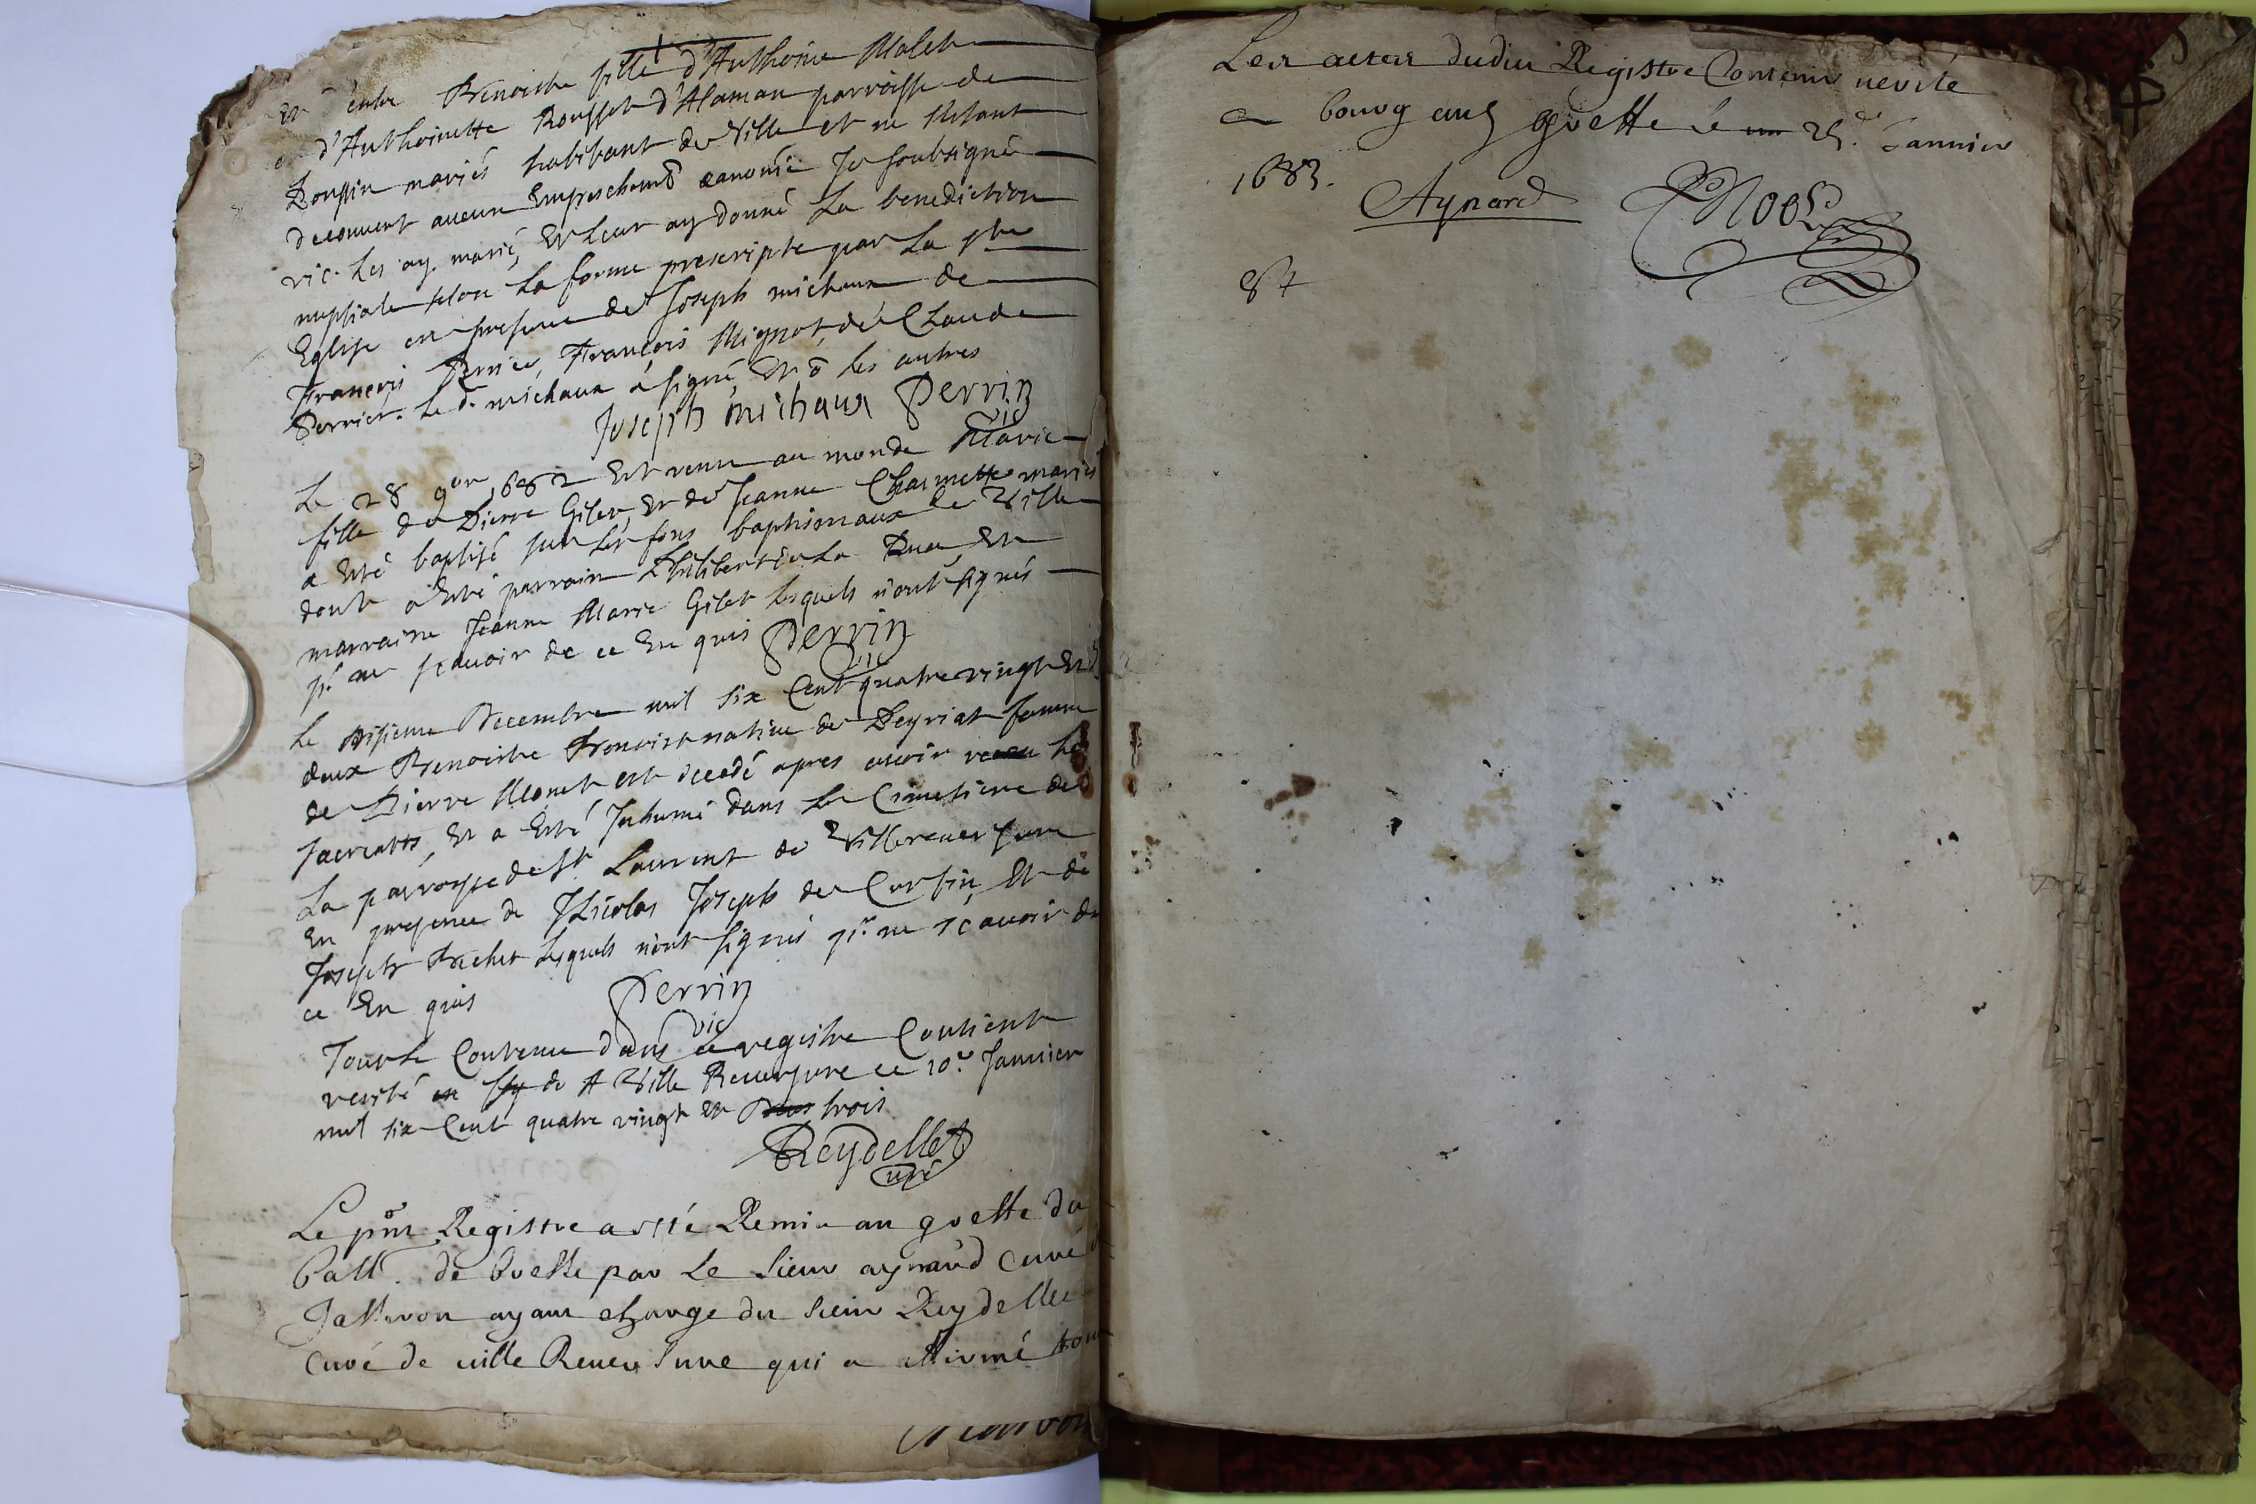 Et d'entre Benoiste fille d'Anthoine Molet
et d'Anthoinette Rousset d'Haman parroisse de
Rouffin mariés habitant de Ville et ne s'estant
decouvert aucun Empeschemt canonic Je soubsigné
vic. les ay marié, Et leur ay donné La benediction
nuptiale selon La forme prescripte par La ste
Eglise en presence de Joseph michaux de
François Perrier, François Mignot, de Claude
Perrier. Le d. michaux a signé, Et ō les autres
Joseph michaux Perrin
vic
Le 28 9bre 1682 Est venu au monde Marie
fille de Pierre Gilet, Et de Jeanne Charnette mariés
a Esté baptisé sur les fons baptismaux de Ville
dont a Esté parrain Philibert de La Rua, Et
marraine Jeanne Marie Gilet lesquels n'ont signés
pr ne scavoir de ce En quis Perrin
vic
Le Decembre mil six Cent quatre vingt Et
deux Benoiste native de Leyriat femme
de Pierre Monet est decedé apres avoir receu les
sacreatts, Et a Esté Inhumé dans Le Cimetiere de
La parroisse de St Laurent de Villereversure
En presence de Nicolas Joseph de Cursin, Et de
Joseph Bachet lesquels n'ont signés pr ne scavoir de
ce En quis Perrin
vic
Tout le Contenu dans ce registre Contient
verité en de A Ville Reversure ce 10e Janvier
mil six Cent quatre vingt Et trois
Reydellet
curé
Le pnt Registre a esté Remis au greffe du
Ball. de bresse par Le Sieur aynard curé
Jasseron ayant charge du Sieur Reydellet
curé de ville Reversure qui a affirmé
Les actes dudit Registre Contenir verité
a bourg au greffe le 25e Janvier
1683.
Aynard
87